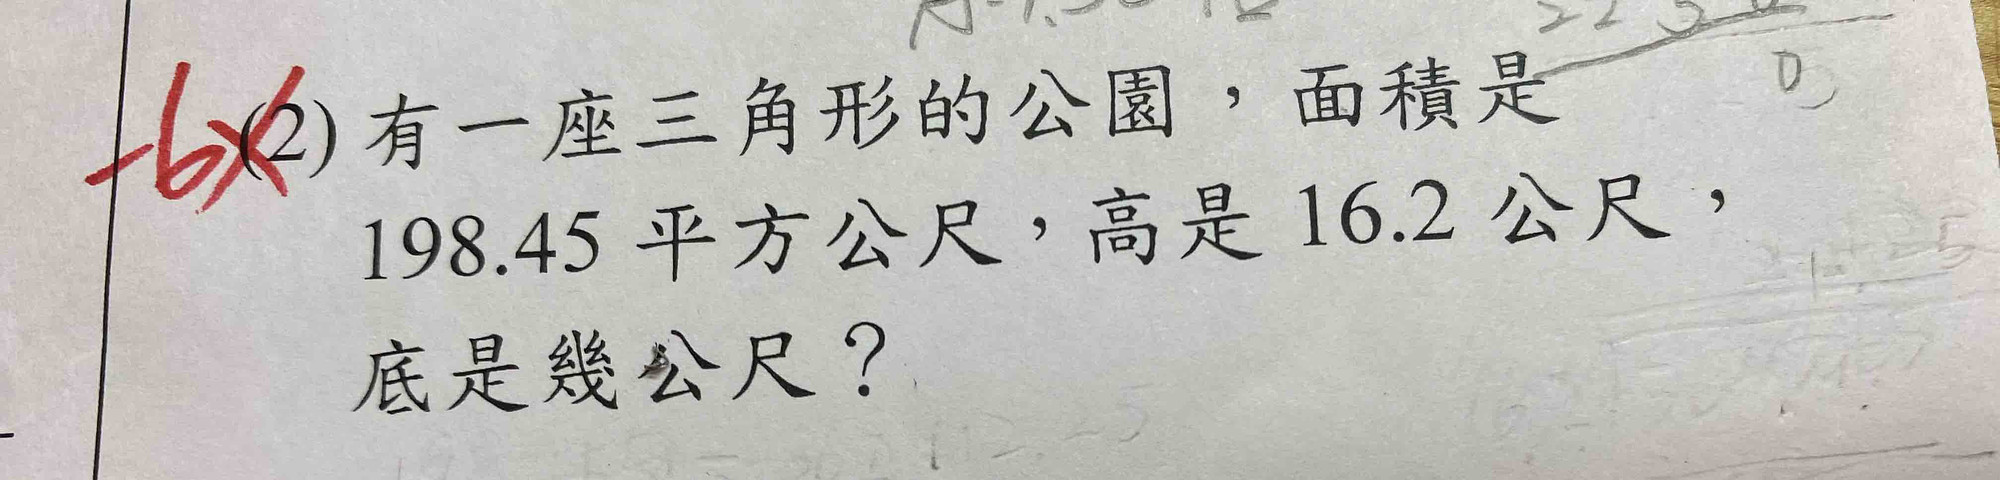 -6 (2) 有一座三角形的公園，面積是
198.45 平方公尺，高是 16.2 公尺，
底是幾公尺？